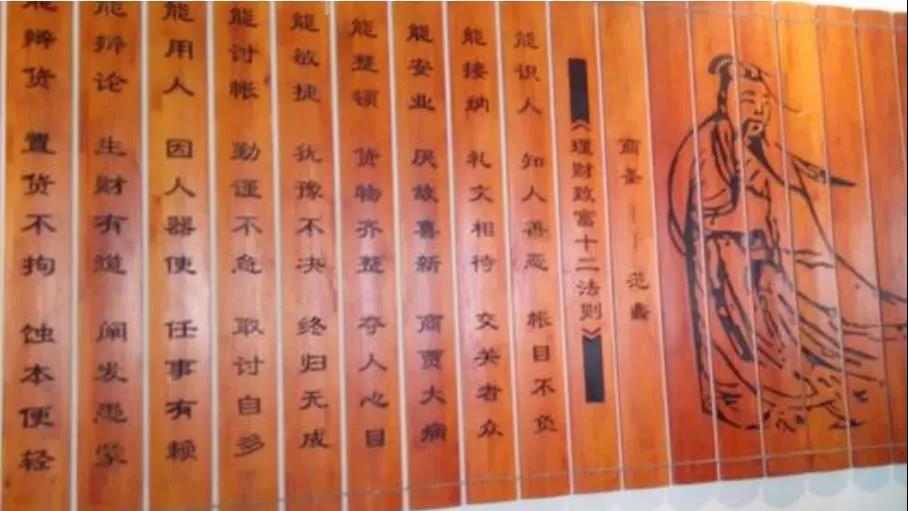 商圣——范蠡
《理财致富十二法则》
能识人 知人善恶 帐目不负
能接纳 礼文相待 交关者众
能安业 厌故喜新 商贾大病
能整顿 货物齐整 夺人心目
能敏捷 犹豫不决 终归无成
能讨帐 勤谨不怠 取讨自多
能用人 因人器使 任事有赖
能辩论 生财有道 阐发愚蒙
能辨货 置货不拘 蚀本便轻